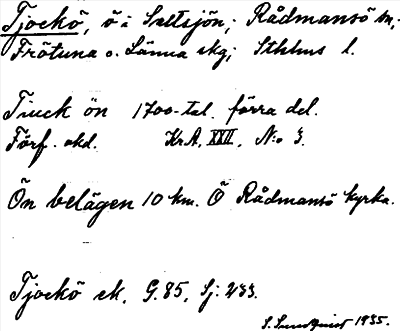 Tjockö, ö i Saltsjön; Rådmansö sn,
Frötuna o. Länna skg; Sthlms l.
Tiuck ön 1700-tal. förra del.
Förf. okd. KrA, XXII, N:o 3.
Ön belägen 10 km. Ö Rådmansö kyrka.
Tjockö ek. G. 85, Sj: 233.
S. Sundquist 1935.